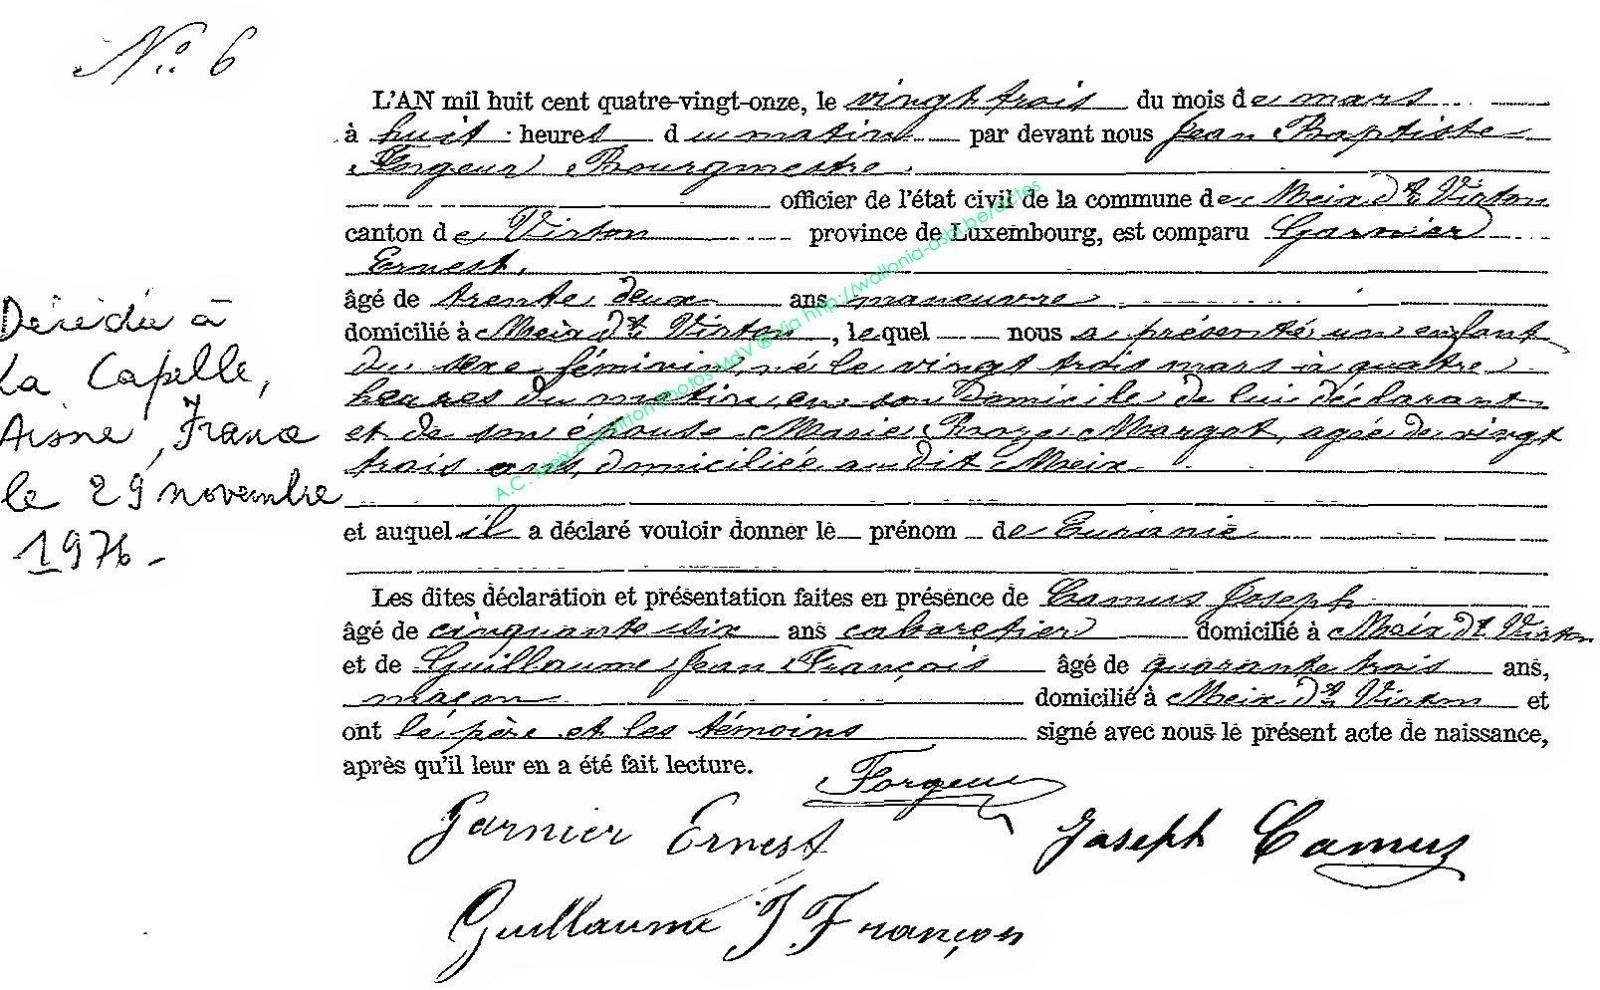 N° 6
L'AN mil huit cent quatre-vingt-onze, le vingt trois du mois de mars
à huit heures du matin par devant nous Jean Baptiste
Forgeur Bourgmestre
officier de l'état civil de la commune de Meix dt Virton
canton de Virton province de Luxembourg, est comparu Garnier
Ernest,
âgé de trente deux ans maneuvre
domicilié à Meix dt Virton, lequel nous a présenté un enfant
du sexe féminin, né le vingt trois mars à quatre
heures du matin, en son domicile de lui déclarant
et de son épouse Marie Margot, agée de vingt
trois ans, domiciliée au dit Meix
et auquel il a déclaré vouloir donner le prénom de
Les dites déclaration et présentation faites en présence de Camus Joseph
âgé de cinquante six ans cabaretier domicilié à Meix dt Virton
et de Guillaume Jean François âgé de quarante trois ans,
maçon domicilié à Meix dt Virton et
ont le père et les témoins signé avec nous le présent acte de naissance,
après qu'il leur en a été fait lecture.
Forgeur
Garnier Ernest
Joseph Camus
Guillaume J Françon
Décédée à
La Capelle,
Aisne, France
le 29 novembre
1976 -
A.C. Meix-dt-Virton Photos MdV © via http://wallonia-asbl.be/actes